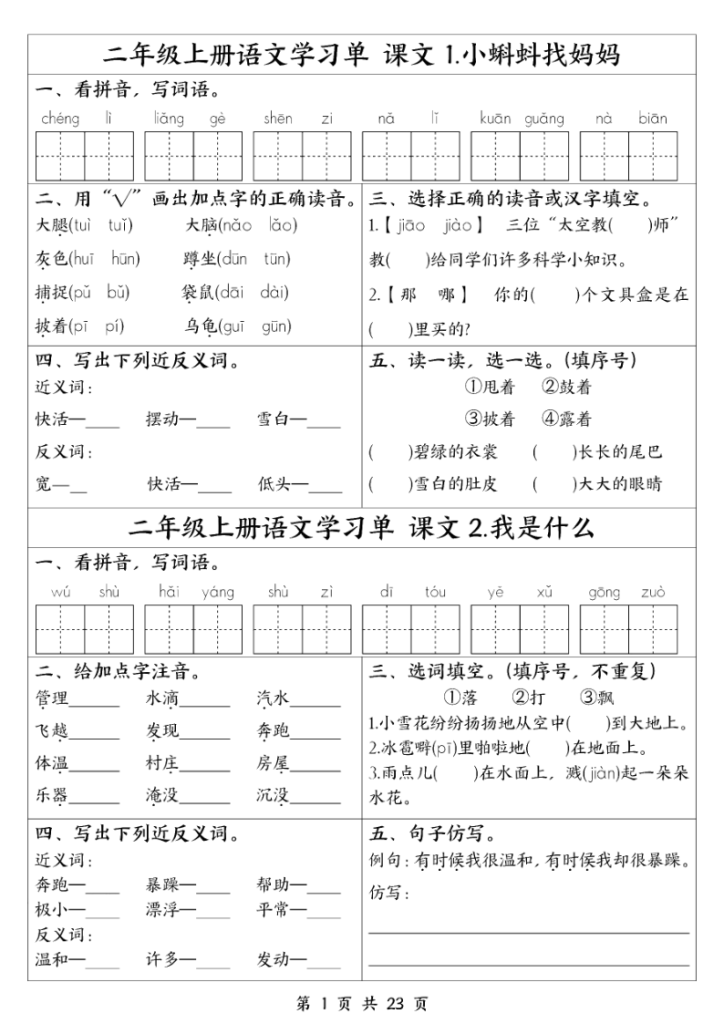 二年级上册语文学习单 课文 1.小蝌蚪找妈妈
一、看拼音，写词语。
chéng lì liǎng gè shēn zi nǎ lǐ kuān guǎng nà biān
二、用“√”画出加点字的正确读音。
大腿(tuì tuǐ) 大脑(nǎo lǎo)
灰色(huī hūn) 蹲坐(dūn tūn)
捕捉(pǔ bǔ) 袋鼠(dāi dài)
披着(pī pí) 乌龟(guī gūn)
三、选择正确的读音或汉字填空。
1.【jiāo jiào】 三位“太空教( )师”
教( )给同学们许多科学小知识。
2.【那 哪】 你的( )个文具盒是在
( )里买的?
四、写出下列近反义词。
近义词:
快活—____ 摆动—____ 雪白—____
反义词:
宽—__ 快活—____ 低头—____
五、读一读，选一选。(填序号)
①甩着 ②鼓着
③披着 ④露着
( )碧绿的衣裳 ( )长长的尾巴
( )雪白的肚皮 ( )大大的眼睛
二年级上册语文学习单 课文 2.我是什么
一、看拼音，写词语。
wú shù hǎi yáng shù zì dī tóu yě xǔ gōng zuò
二、给加点字注音。
管理______ 水滴______ 汽水______
飞越______ 发现______ 奔跑______
体温______ 村庄______ 房屋______
乐器______ 淹没______ 沉没______
三、选词填空。(填序号，不重复)
①落 ②打 ③飘
1.小雪花纷纷扬扬地从空中( )到大地上。
2.冰雹噼(pī)里啪啦地( )在地面上。
3.雨点儿( )在水面上，溅(jiàn)起一朵朵
水花。
四、写出下列近反义词。
近义词:
奔跑—____ 暴躁—____ 帮助—____
极小—____ 漂浮—____ 平常—____
反义词:
温和—____ 许多—____ 发动—____
五、句子仿写。
例句:有时候我很温和，有时候我却很暴躁。
仿写:
第 1 页 共 23 页